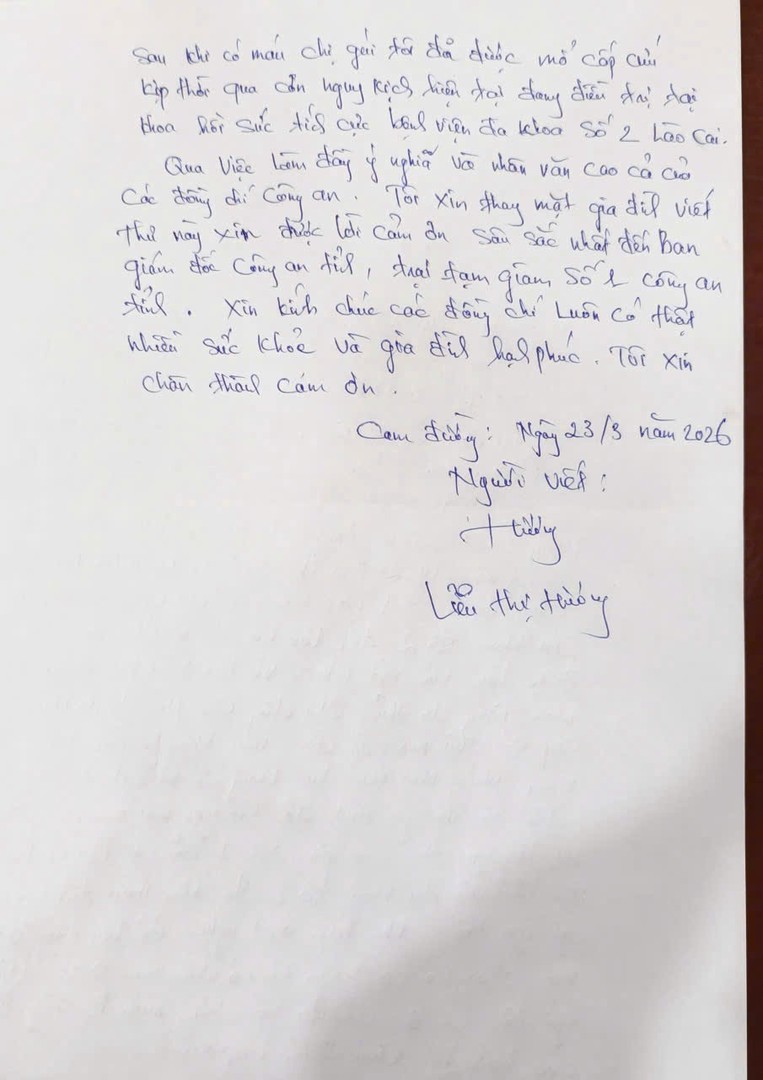 Sau khi có máu chị gái tôi đã được mổ cấp cứu
kịp thời qua cơn nguy kịch hiện tại đang điều trị tại
khoa hồi sức tích cực bệnh viện đa khoa số 2 Lào Cai.
Qua việc làm đầy ý nghĩa và nhân văn cao cả của
các đồng chí công an. Tôi xin thay mặt gia đình viết
thư này xin được lời cảm ơn sâu sắc nhất đến Ban
giám đốc công an tỉnh, trại tạm giam số 1 công an
tỉnh. Xin kính chúc các đồng chí luôn có thật
nhiều sức khỏe và gia đình hạnh phúc. Tôi xin
chân thành cám ơn.
Cam đường: Ngày 23/3 năm 2026
Người viết:
Hường
thị Hường